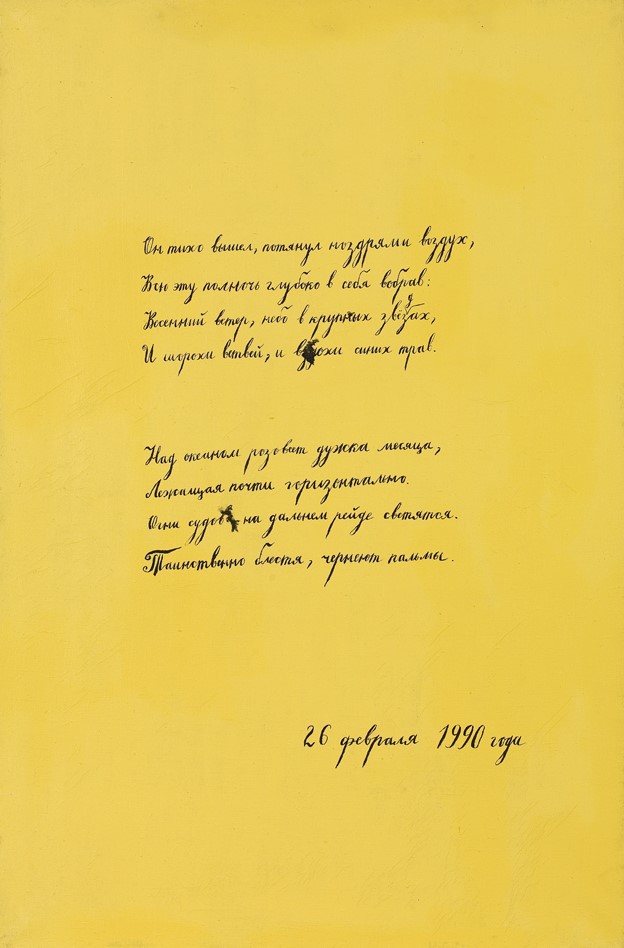 Он тихо вышел, потянул ноздрями воздух,
Всю эту полночь глубоко в себя вобрав:
Весенний ветер, небо в крупных звёздах,
И шорохи ветвей, и вздохи синих трав.
Над океаном розовеет дужка месяца,
Лежащая почти горизонтально.
Огни судов на дальнем рейде светятся.
Таинственно блестя, чернеют пальмы.
26 февраля 1990 года